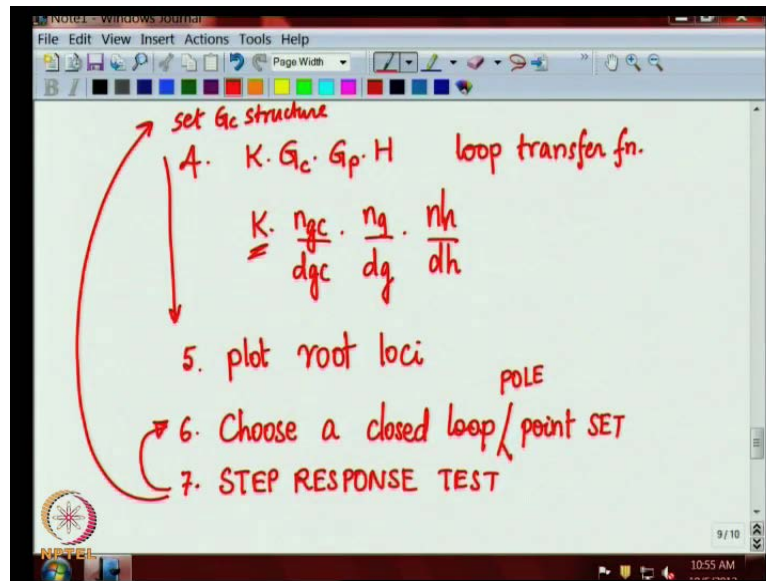 Note1 - Windows Journal
File Edit View Insert Actions Tools Help
Page Width
B I
set Gc structure
4. K. Gc. Gp. H loop transfer fn.
K. ngc/dgc . ng/dg . nh/dh
5. plot root loci
POLE
6. Choose a closed loop / point SET
7. STEP RESPONSE TEST
9/10
NPTEL
10:55 AM